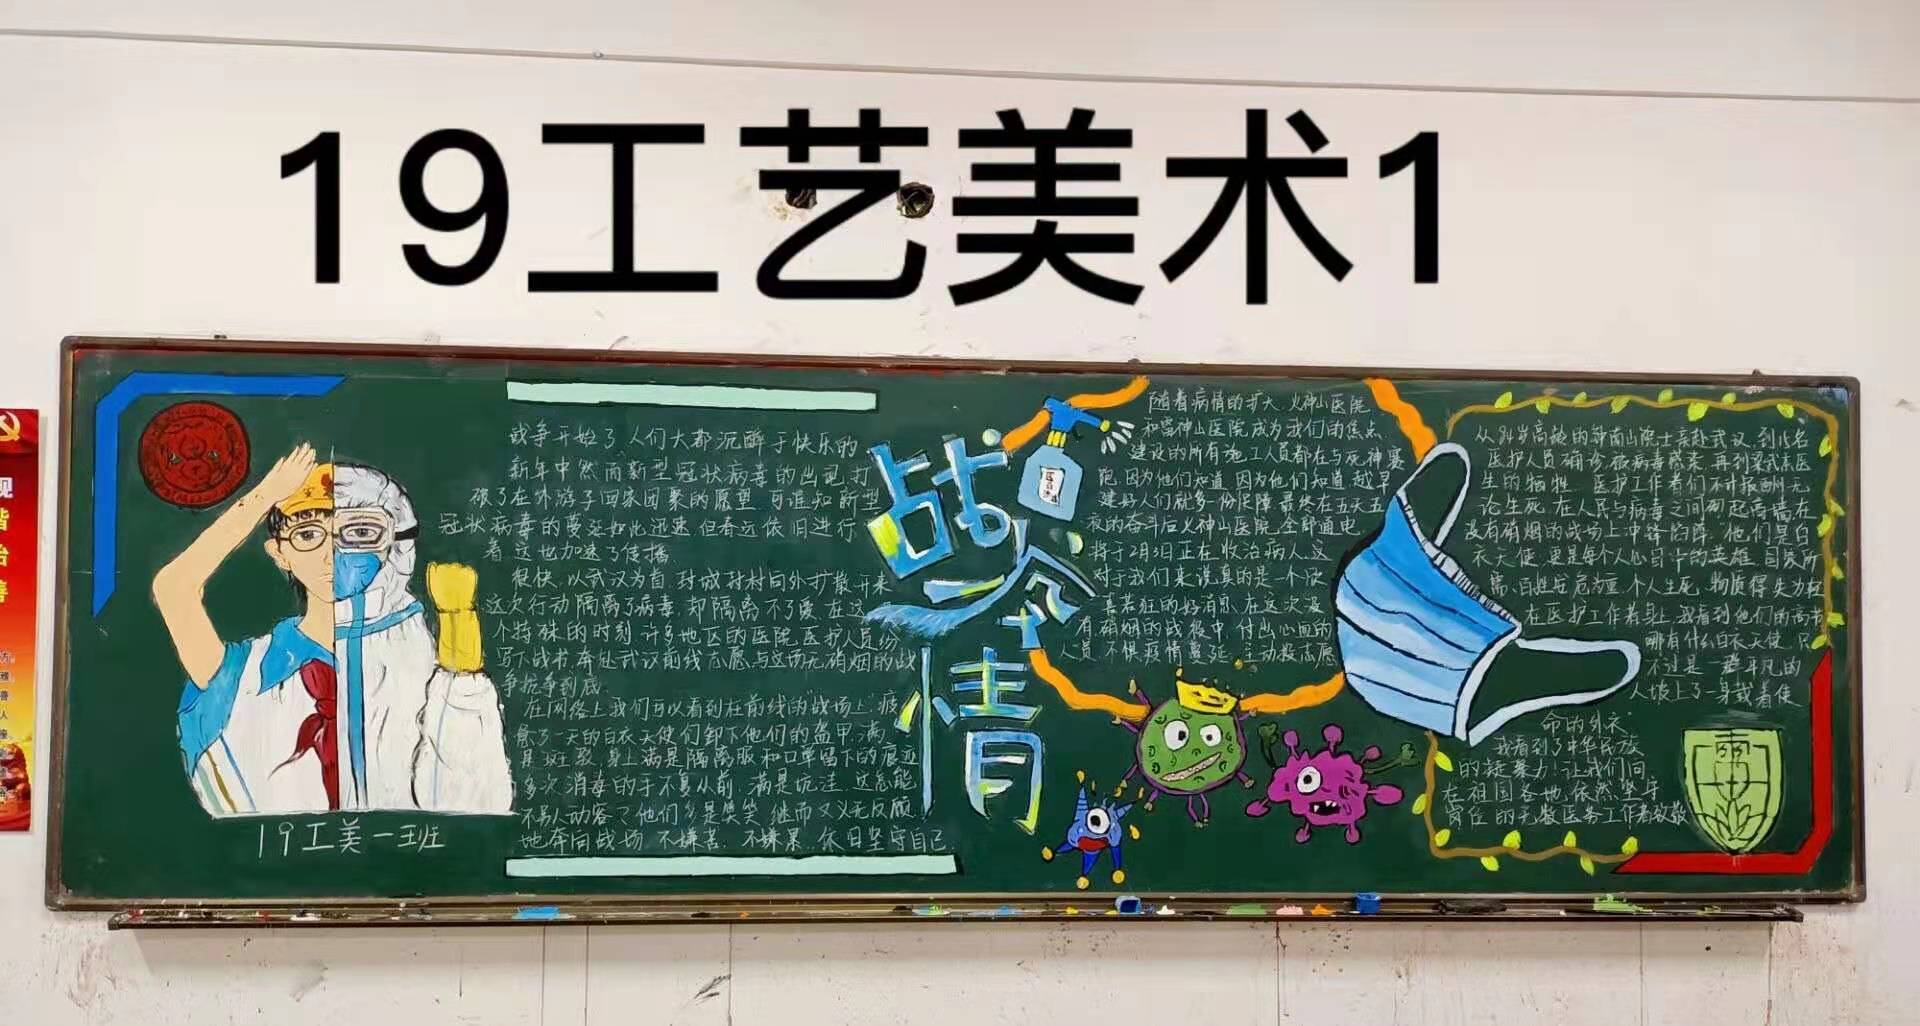 19工艺美术1
战争开始了,人们大都沉醉于快乐的
新年中然而新型冠状病毒的出现,打
破了在外游子回家团聚的愿望,可谁知新型
冠状病毒的蔓延如此迅速,但春运依旧进行
着,这也加速了传播
很快,以武汉为首,封城封村向外扩散开来
这次行动隔离了病毒,却隔离不了爱,在这
个特殊的时刻,许多地区的医院,医护人员纷
写下战书,奔赴武汉前线志愿与这场无硝烟的战
争抗争到底.
在网络上我们可以看到在前线的"战场上",疲
惫了一天的白衣天使们卸下他们的盔甲,满
是斑裂,身上满是隔离服和口罩留下的痕迹
多次消毒的手不复从前,满是坑洼,这怎能
不易人动容?他们多是笑笑,继而又义无反顾
地奔向战场,不嫌苦,不嫌累,依旧坚守自己
19工美一班
战
疫
情
随着病情的扩大,火神山医院
和雷神山医院成为我们的焦点
建设的所有施工人员都在与死神赛
跑,因为他们知道,因为他们知道,越早
建好人们就多一份保障,最终在五天五
夜的奋斗后火神山医院全部通电
将于2月3日正在收治病人,这
对于我们来说真的是一个欣
喜若狂的好消息,在这次没
有硝烟的战役中,付出心血的
人员,不惧疫情蔓延,主动投志愿
从84岁高龄的钟南山院士亲赴武汉,到15名
医护人员确诊被病毒感染,再到梁武东医
生的牺牲,医护工作者们不计报酬,无
论生死,在人民与病毒之间砌起高墙,在
没有硝烟的战场上冲锋陷阵,他们是白
衣天使,更是每个人心目中的英雄,国家所
需,百姓安危为重,个人生死,物质得失为轻
在医护工作者身上,我看到他们的高尚
哪有什么白衣天使,只
不过是一群平凡的
人披上了一身战着使
命的外衣"
我看到了中华民族
的凝聚力!让我们向
在祖国各地,依然坚守
岗位的无数医务工作者致敬